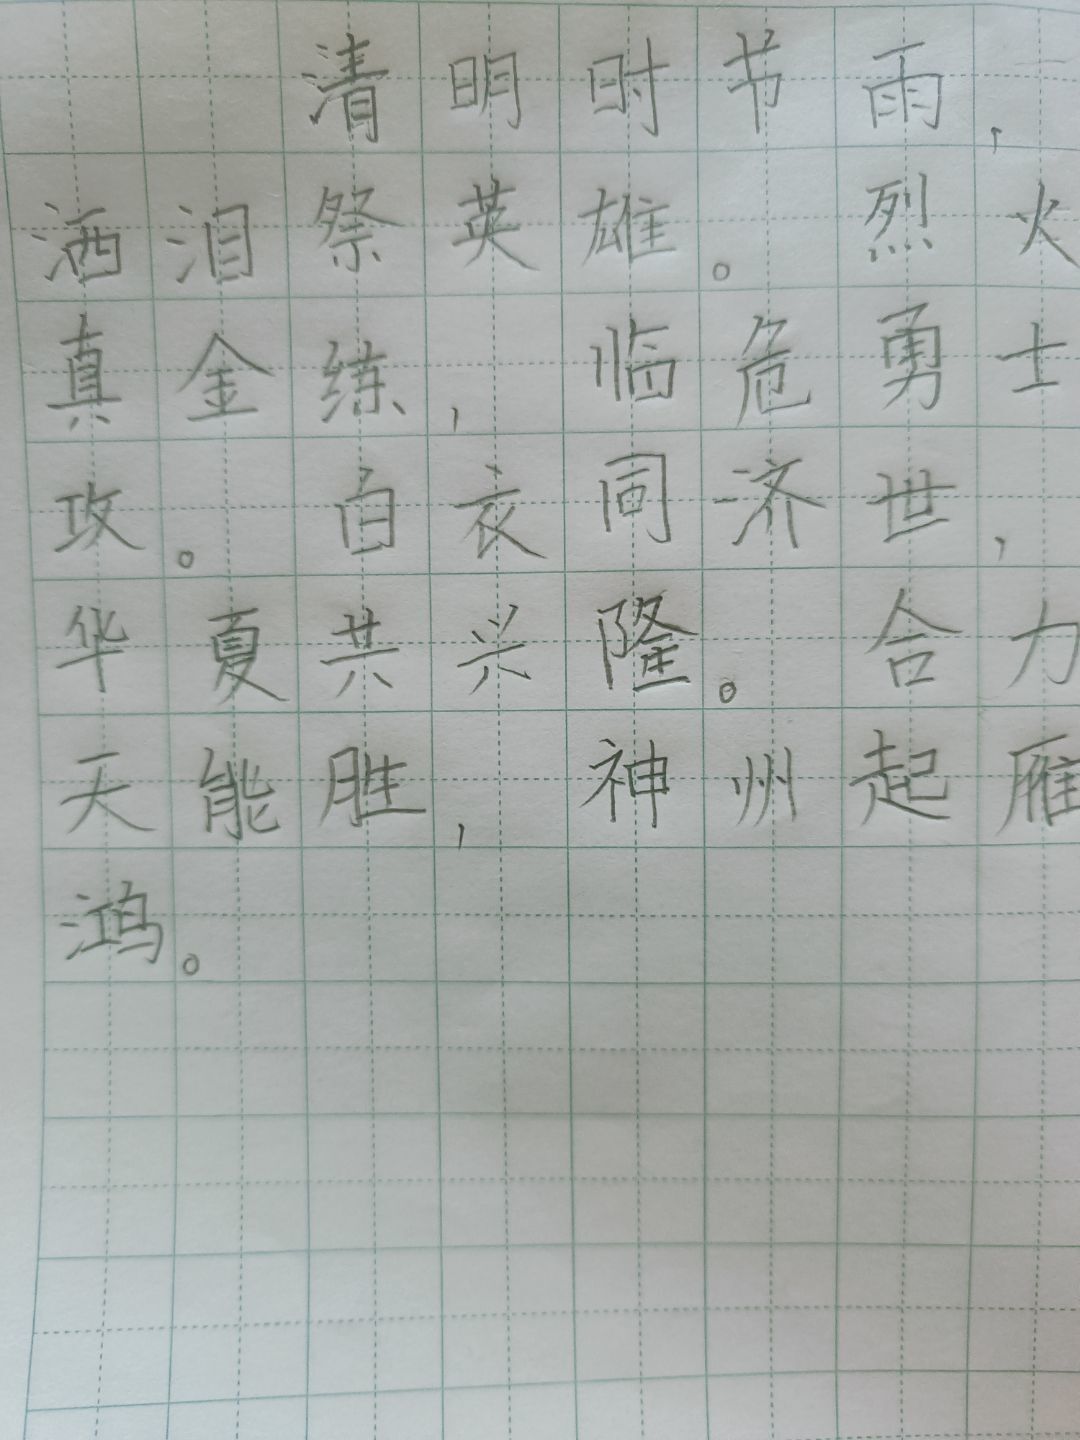 清明时节雨，
洒泪祭英雄。烈火
真金练，临危勇士
攻。白衣同济世，
华夏共兴隆。合力
天能胜，神州起雁
鸿。